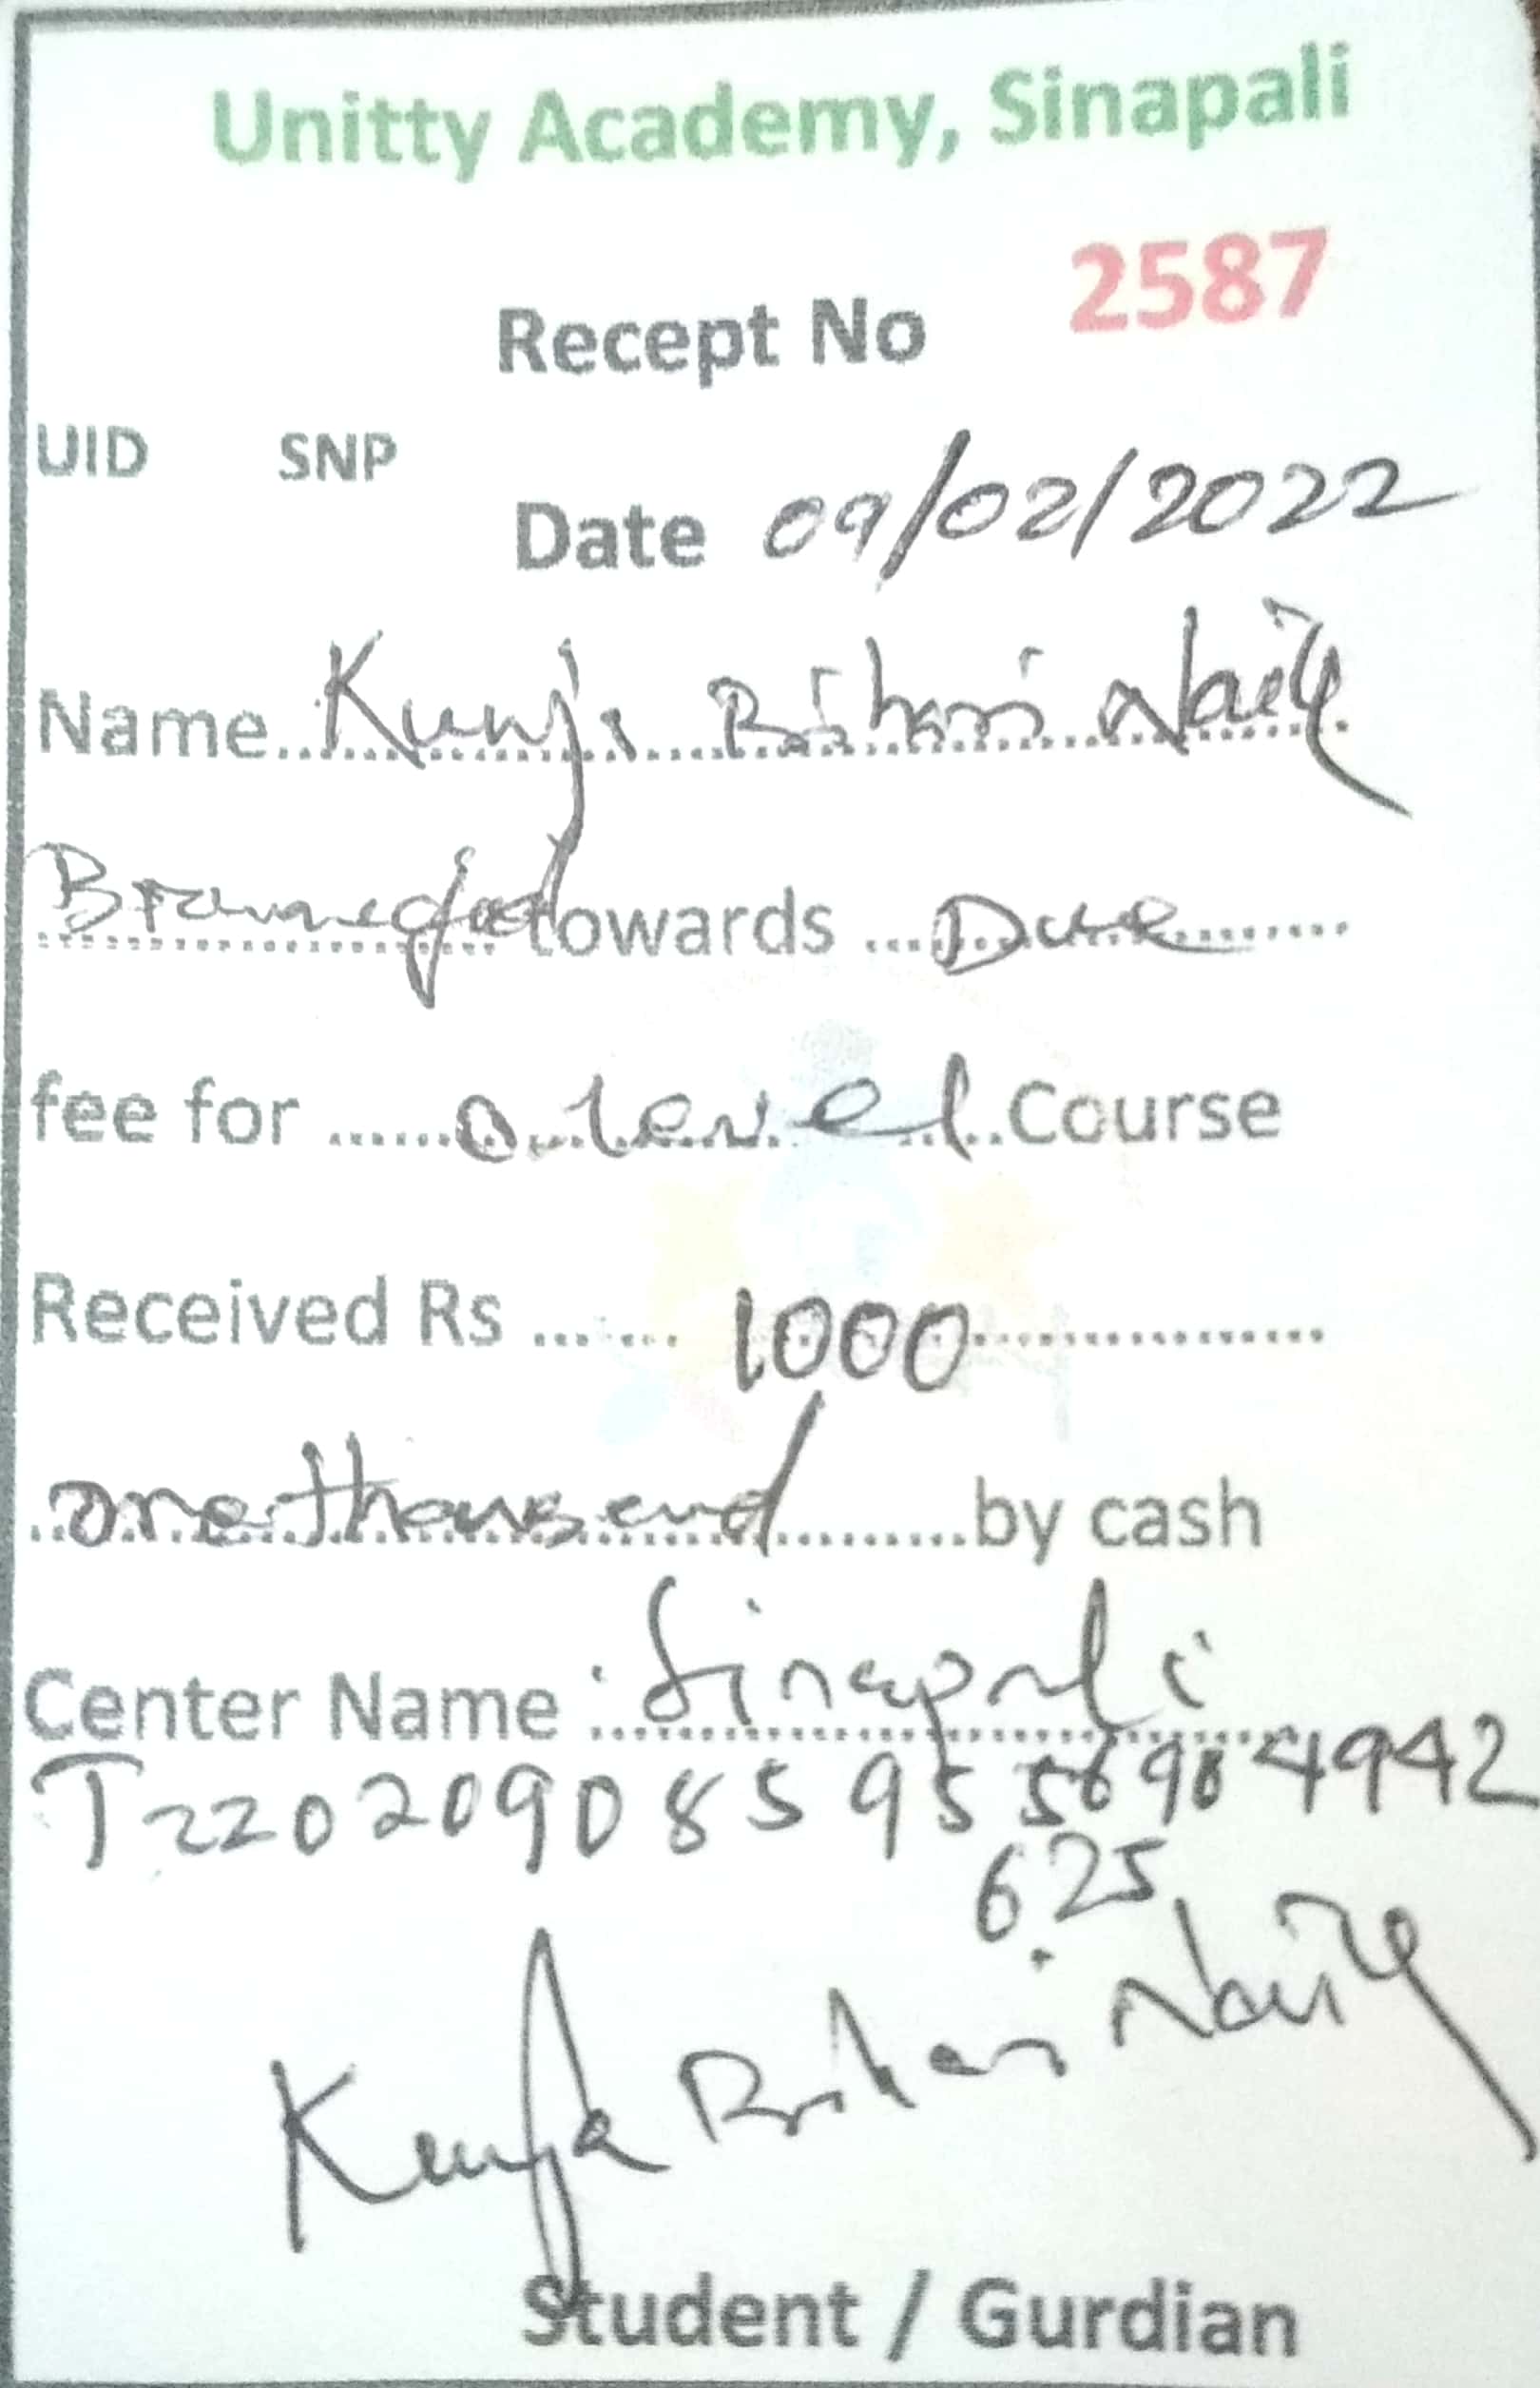 Unitty Academy, Sinapali
Recept No 2587
UID SNP
Date 09/02/2022
Name Kunja Bihari Naik
towards Due
fee for O level Course
Received Rs 1000
one thousand by cash
Center Name : Sinapali
T2202090859556904942
625
Kunja Bihari Naik
Student / Gurdian